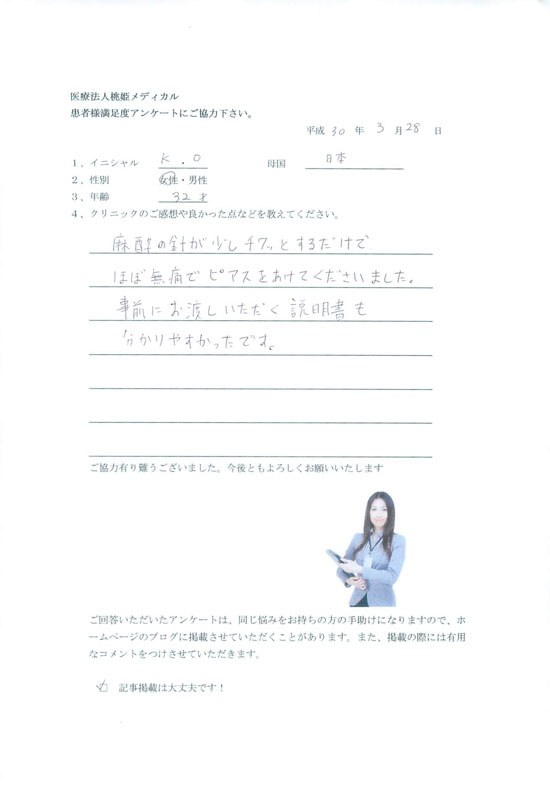 医療法人桃姫メディカル
患者様満足度アンケートにご協力下さい。
平成 30 年 3 月 28 日
1、イニシャル K.O 母国 日本
2、性別 女性・男性
3、年齢 32才
4、クリニックのご感想や良かった点などを教えてください。
麻酔の針が少しチクッとするだけで
ほぼ無痛でピアスをあけてくださいました。
事前にお渡しいただく説明書も
分かりやすかったです。
ご協力有り難うございました。今後ともよろしくお願いいたします
ご回答いただいたアンケートは、同じ悩みをお持ちの方の手助けになりますので、ホ
ームページのブログに掲載させていただくことがあります。また、掲載の際には有用
なコメントをつけさせていただきます。
記事掲載は大丈夫です！